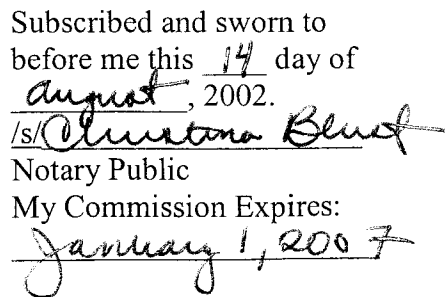 Subscribed and sworn to
before me this 14 day of
August, 2002.
/s/ Christina
Notary Public
My Commission Expires:
January 1, 2007